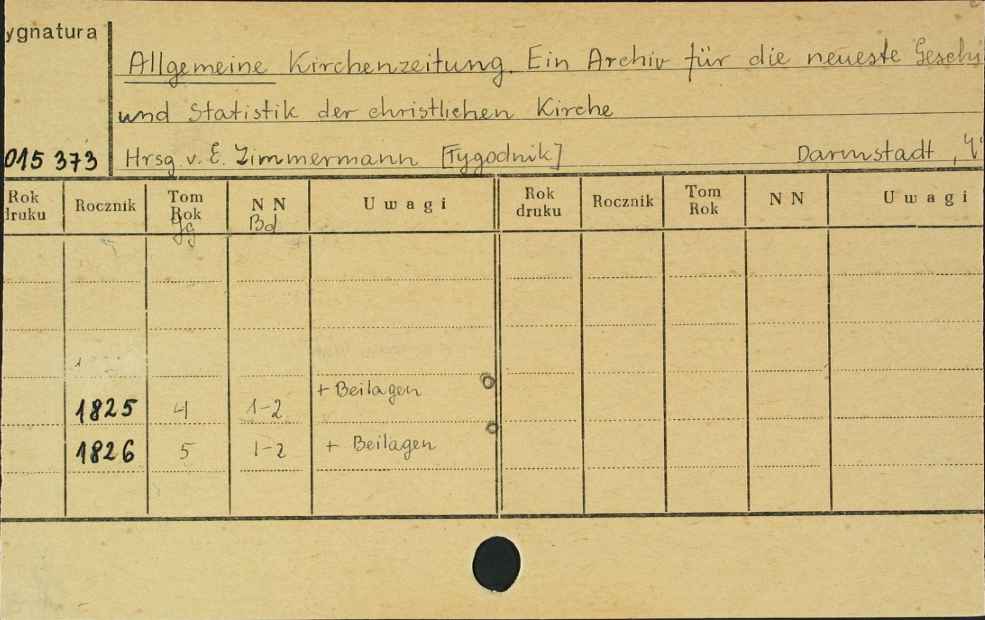 ygnatura
Allgemeine Kirchenzeitung. Ein Archiv für die neueste Geschi
und Statistik der christlichen Kirche
015 373 Hrsg v. E. Zimmermann [Tygodnik] Darmstadt,
Rok druku Rocznik Tom Rok N N U w a g i Rok druku Rocznik Tom Rok N N U w a g i
Jg Bd
+ Beilagen
1825 4 1-2
1826 5 1-2 + Beilagen